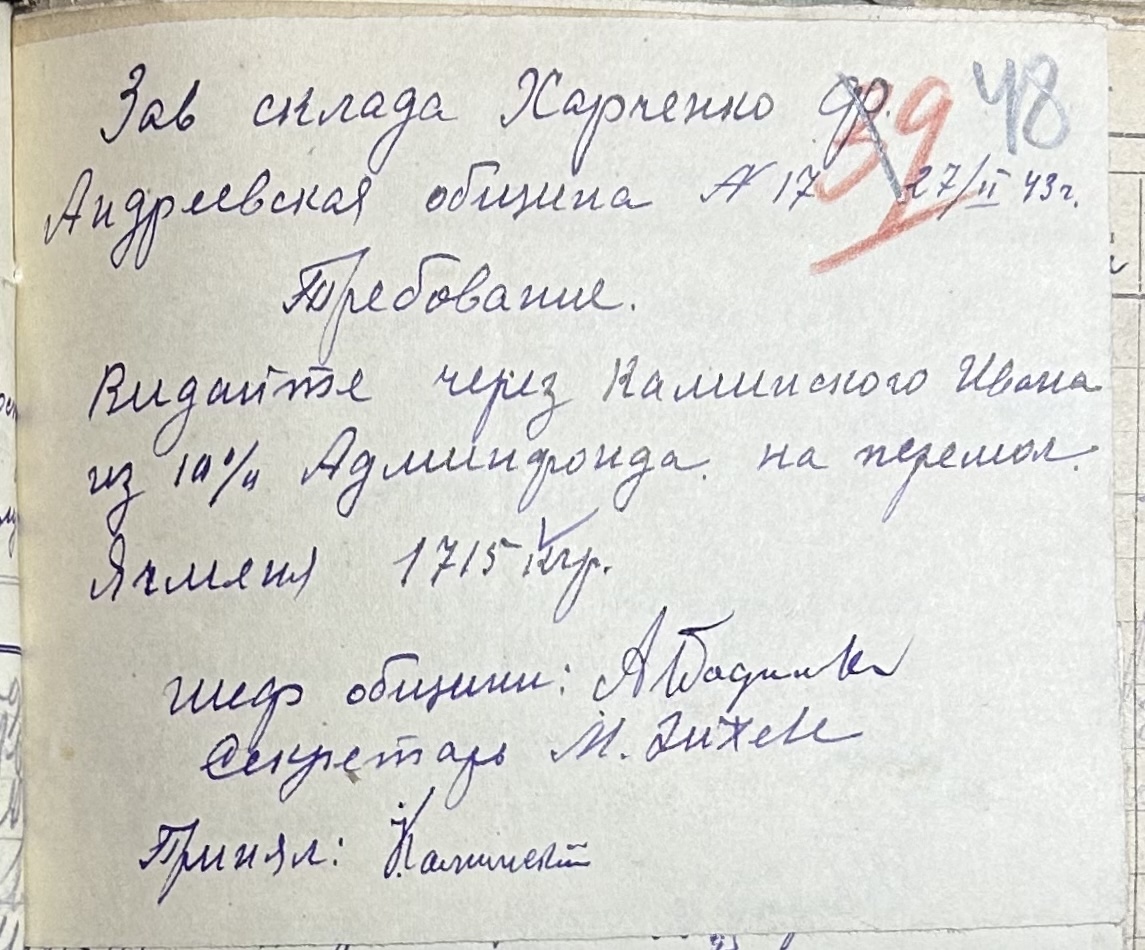 Зав склада Харченко др. 39 48
Андреевская община № 17 27/II 43 г.
Требование.
Видайте через Каминского Ивана
из 10% Админфонда на перемол.
Ячменя 1715 кгр.
Шеф общини:
Секретарь М.
Принял: Каминский